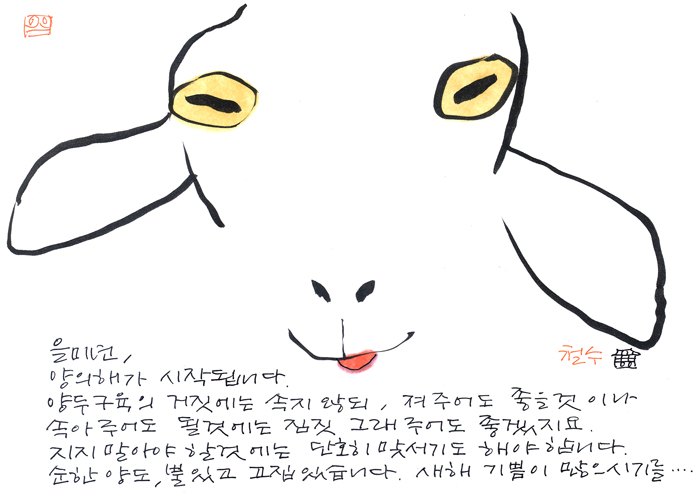 을미년,
양의해가 시작됩니다.
양두구육의 거짓에는 속지 않되, 져주어도 좋을것 이나
속아주어도 될것에는 짐짓 그래주어도 좋겠지요.
지지말아야 할것에는 단호히 맞서기도 해야합니다.
순한 양도, 뿔있고 고집있습니다. 새해 기쁨이 많으시기를....
철수